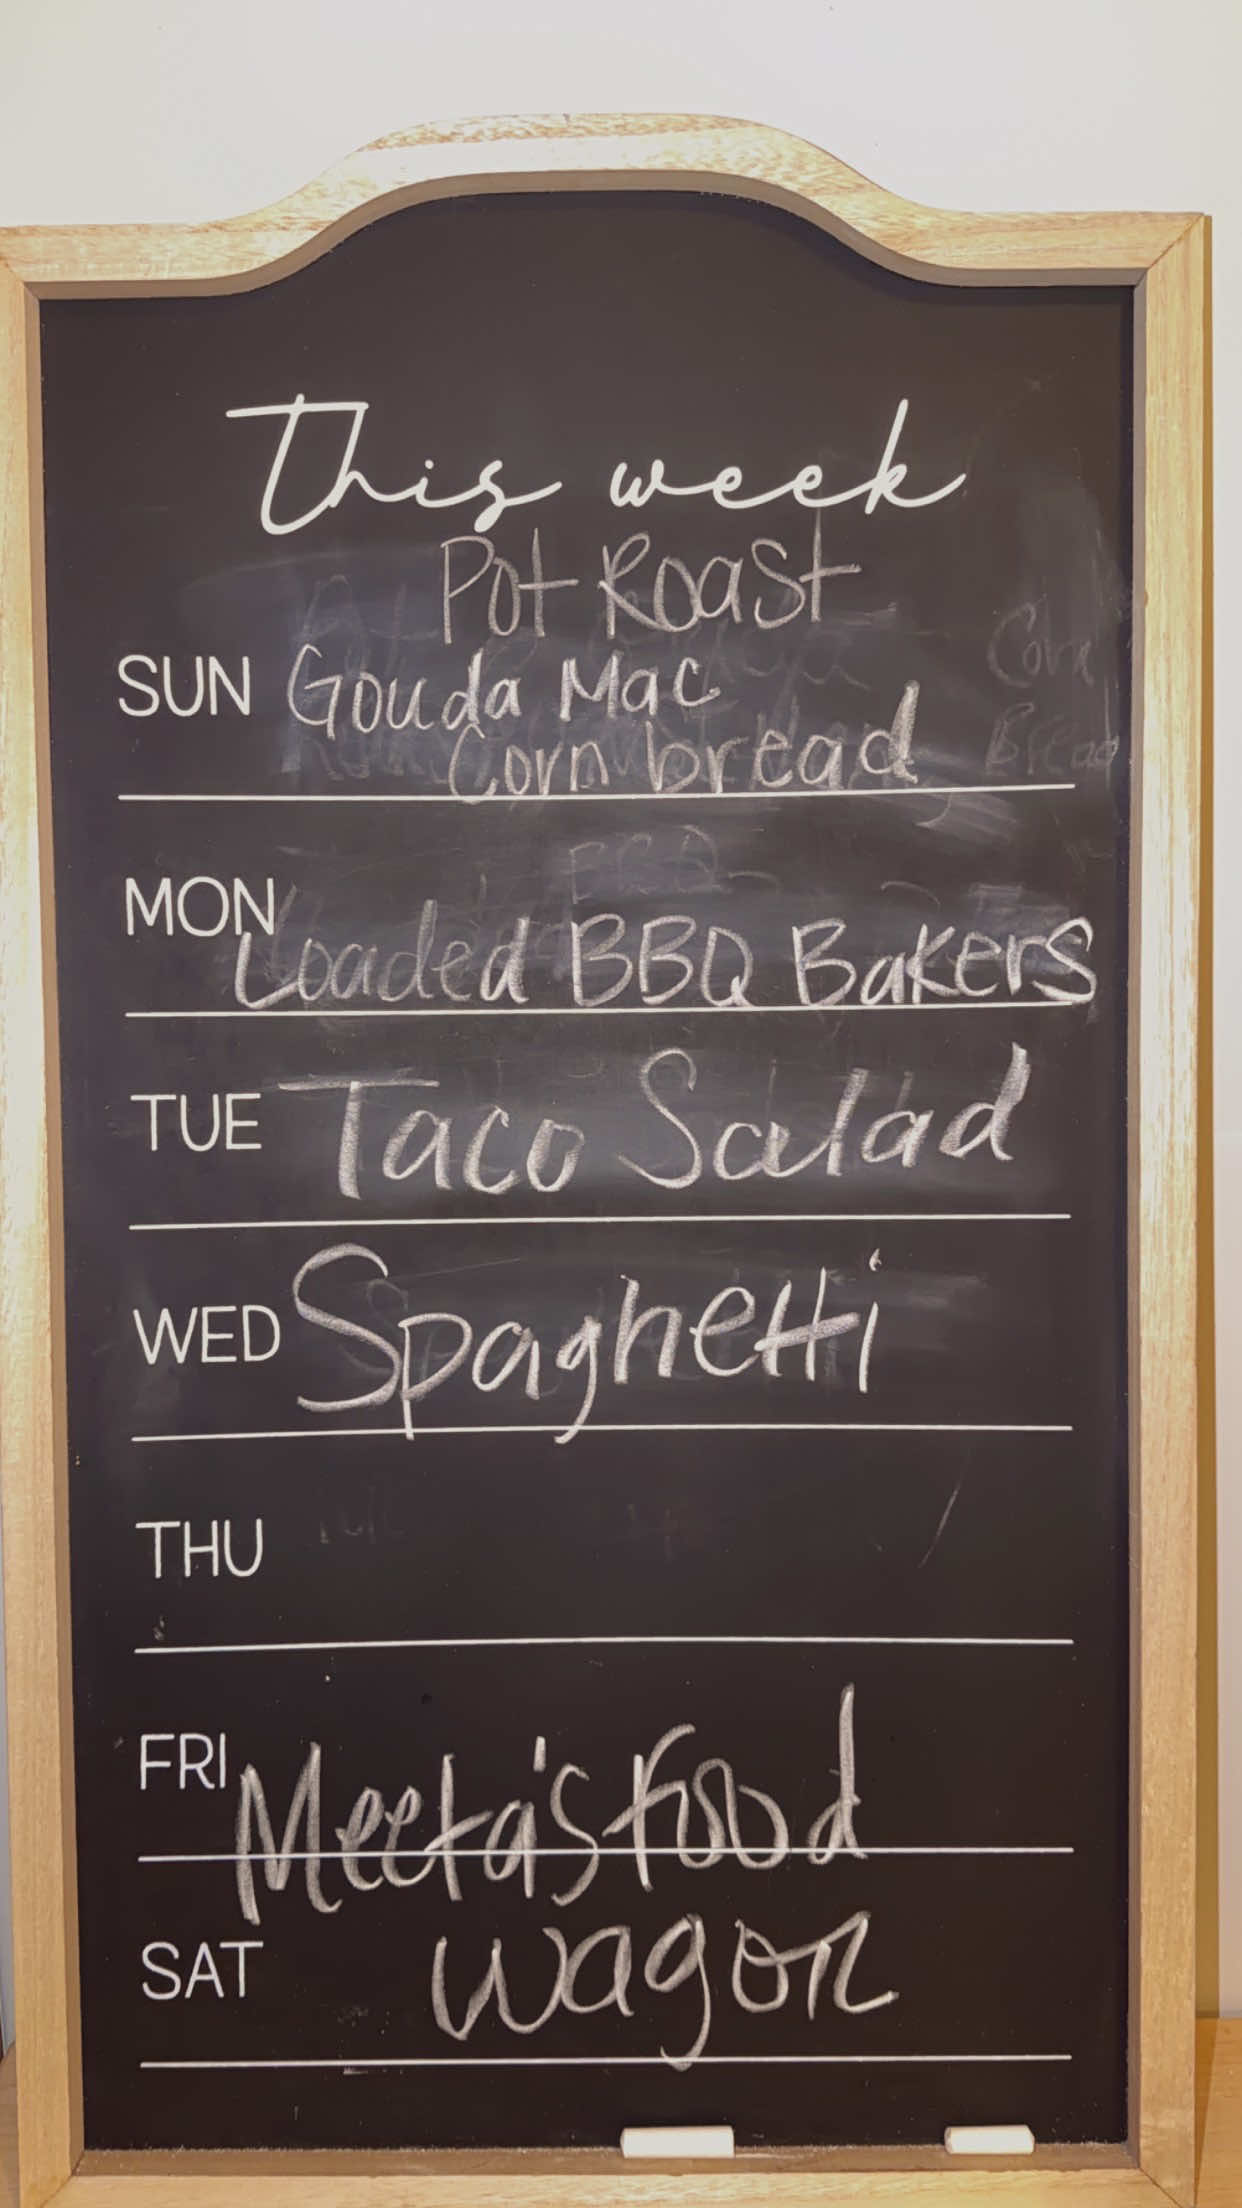 This week
Pot Roast
SUN Gouda Mac
Corn bread
Corn
Bread
MON
Loaded BBQ Bakers
TUE Taco Salad
WED Spaghetti
THU
FRI
Meeta's Food
SAT wagon